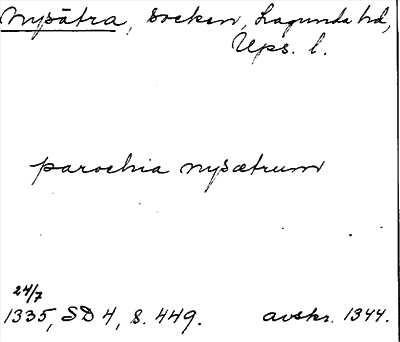 Nysätra, socken, Lagunda hd,
Ups. l.
parochia nysætrum
24/7
1335, SD 4, s. 449. avskr. 1344.